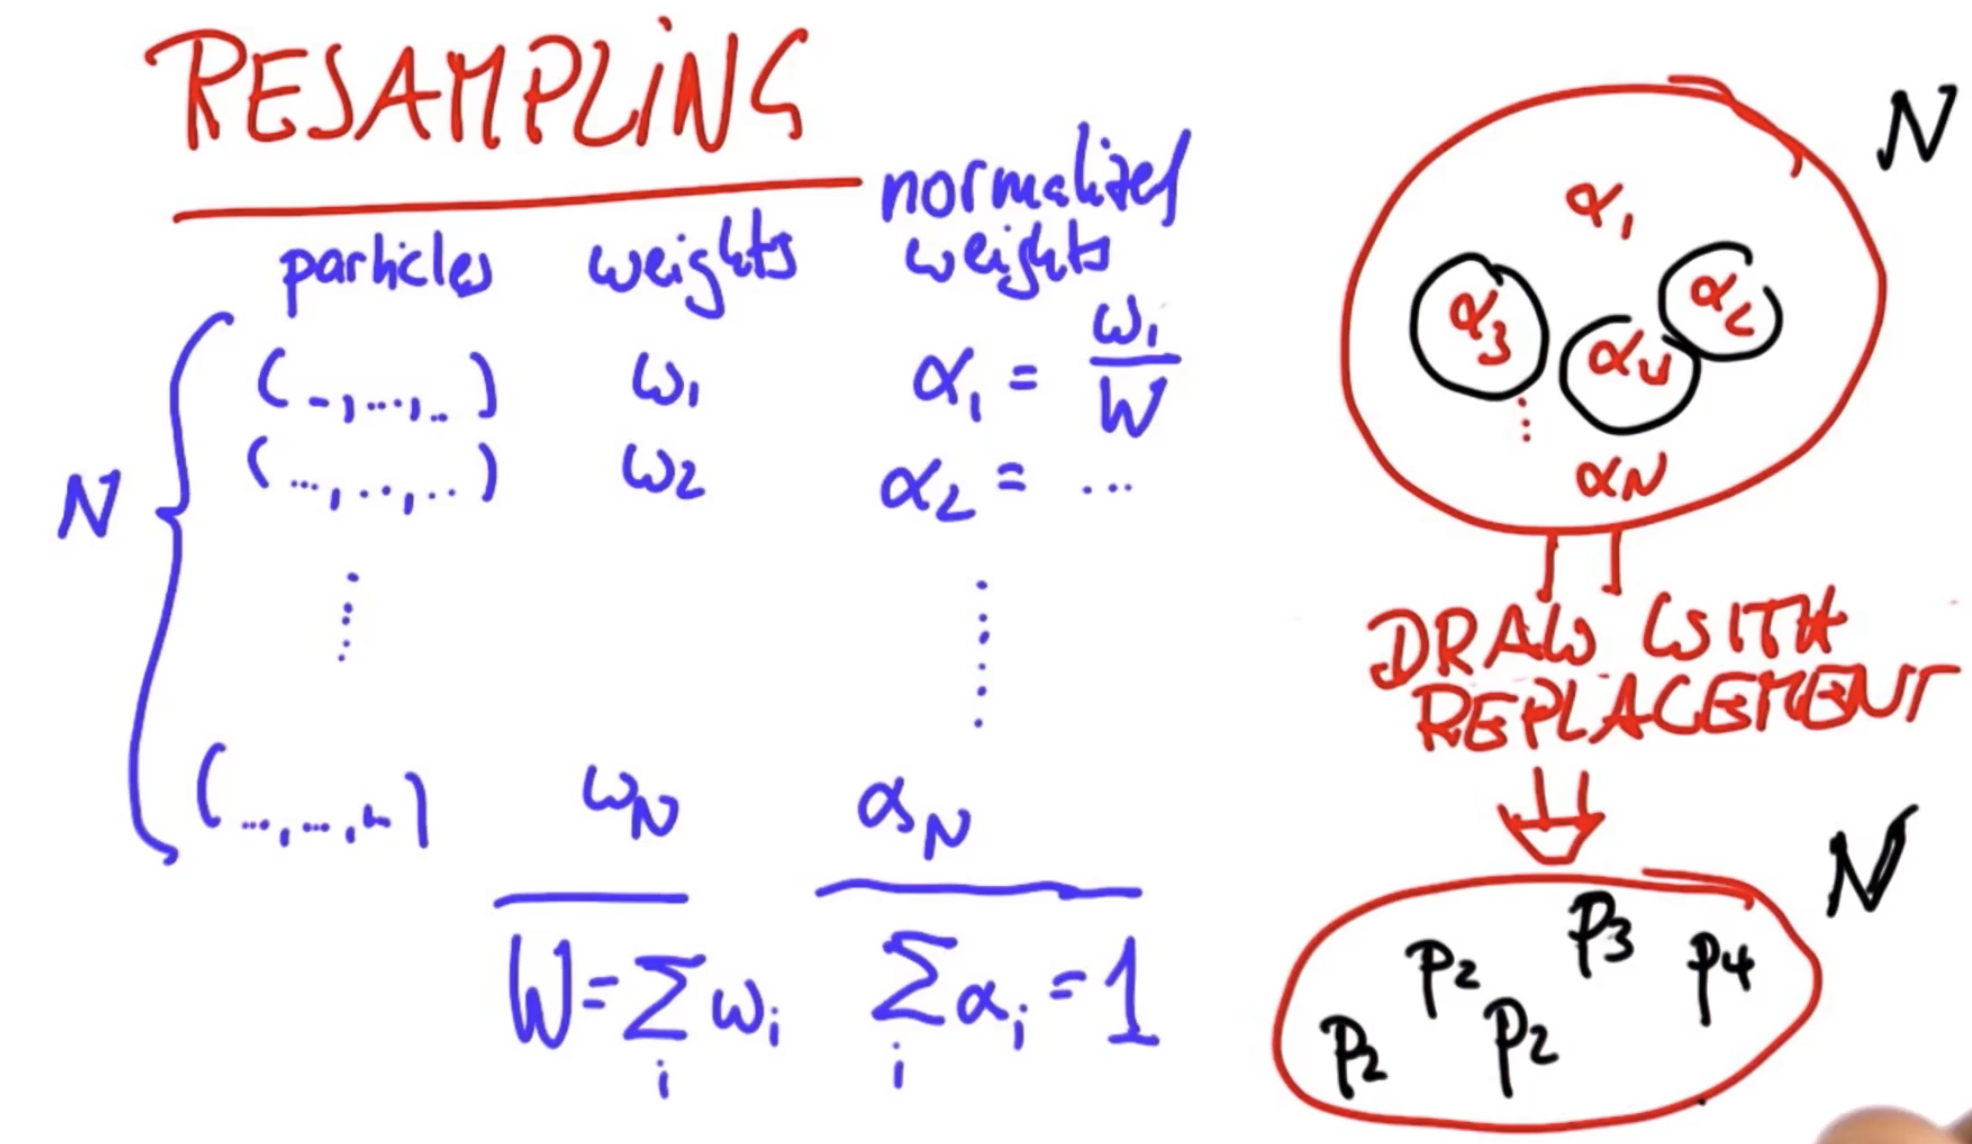 RESAMPLING
particles weights normalized weights
N
( -, ..., .. ) ω₁ α₁ = ω₁/W
( ..., ..., .. ) ω₂ α₂ = ...
⋮ ⋮
( ..., ..., ... ) ω_N α_N
W = Σ_i ω_i Σ_i α_i = 1
N
α₁
α₃ α₄ α₂
⋮
α_N
DRAW WITH
REPLACEMENT
N
p₃
p₂ p₄
p₂ p₂